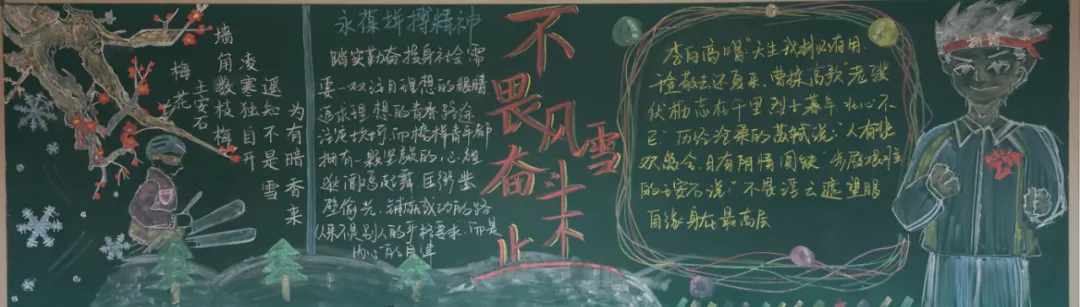 梅花
王安石
墙角数枝梅
凌寒独自开
遥知不是雪
为有暗香来
永葆拼搏精神
踏实勤奋投身社会需
要一双注目理想的眼睛
追求理想的青春路途
法庭坎坷，而榜样青年都
拥有一颗坚毅的心，祖
逖闻鸡起舞，匡衡凿
壁偷光，铺成成功的路
从来不是别人的严格要求，而是
内心的自律
不畏风雪
奋斗不止
李白高唱“天生我材必有用，
千金散尽还复来，曹操高歌“老骥
伏枥志在千里烈士暮年壮心不
已”历经沧桑的苏轼说：“人有悲
欢离合，月有阴晴圆缺”步履艰难
的王安石说“不畏浮云遮望眼
自缘身在最高层
拼搏